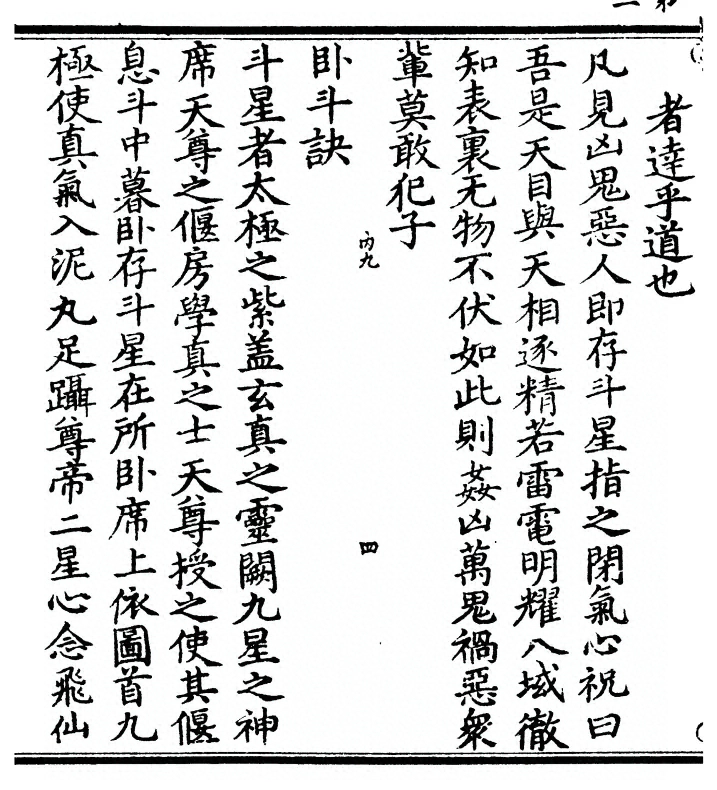 者達乎道也
凡見凶鬼惡人即存斗星指之閉氣心祝曰
吾是天目與天相逐精若雷電明耀八域徹
知表裏无物不伏如此則姦凶萬鬼禍惡衆
輩莫敢犯子
内九
四
卧斗訣
斗星者太極之紫盖玄真之靈闕九星之神
席天尊之偃房學真之士天尊授之使其偃
息斗中暮卧存斗星在所卧席上依圖首九
極使真氣入泥丸足躡尊帝二星心念飛仙